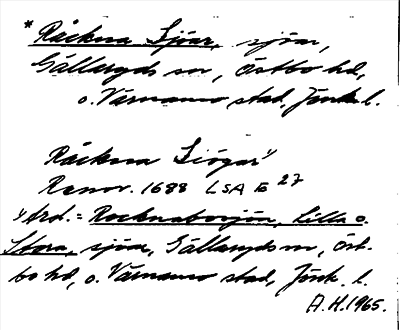 * Räckna Sjöar, sjöar,
Gällaryds sn, Östbo hd,
o. Värnamo stad, Jönk. l.
Räckna Siögar"
Renov. 1688 LSA E 27
"Ård. = Rocknaborjön, Lilla o.
Stora, sjöar, Gällaryds sn, Öst-
bo hd, o. Värnamo stad, Jönk. l.
A.H. 1965.